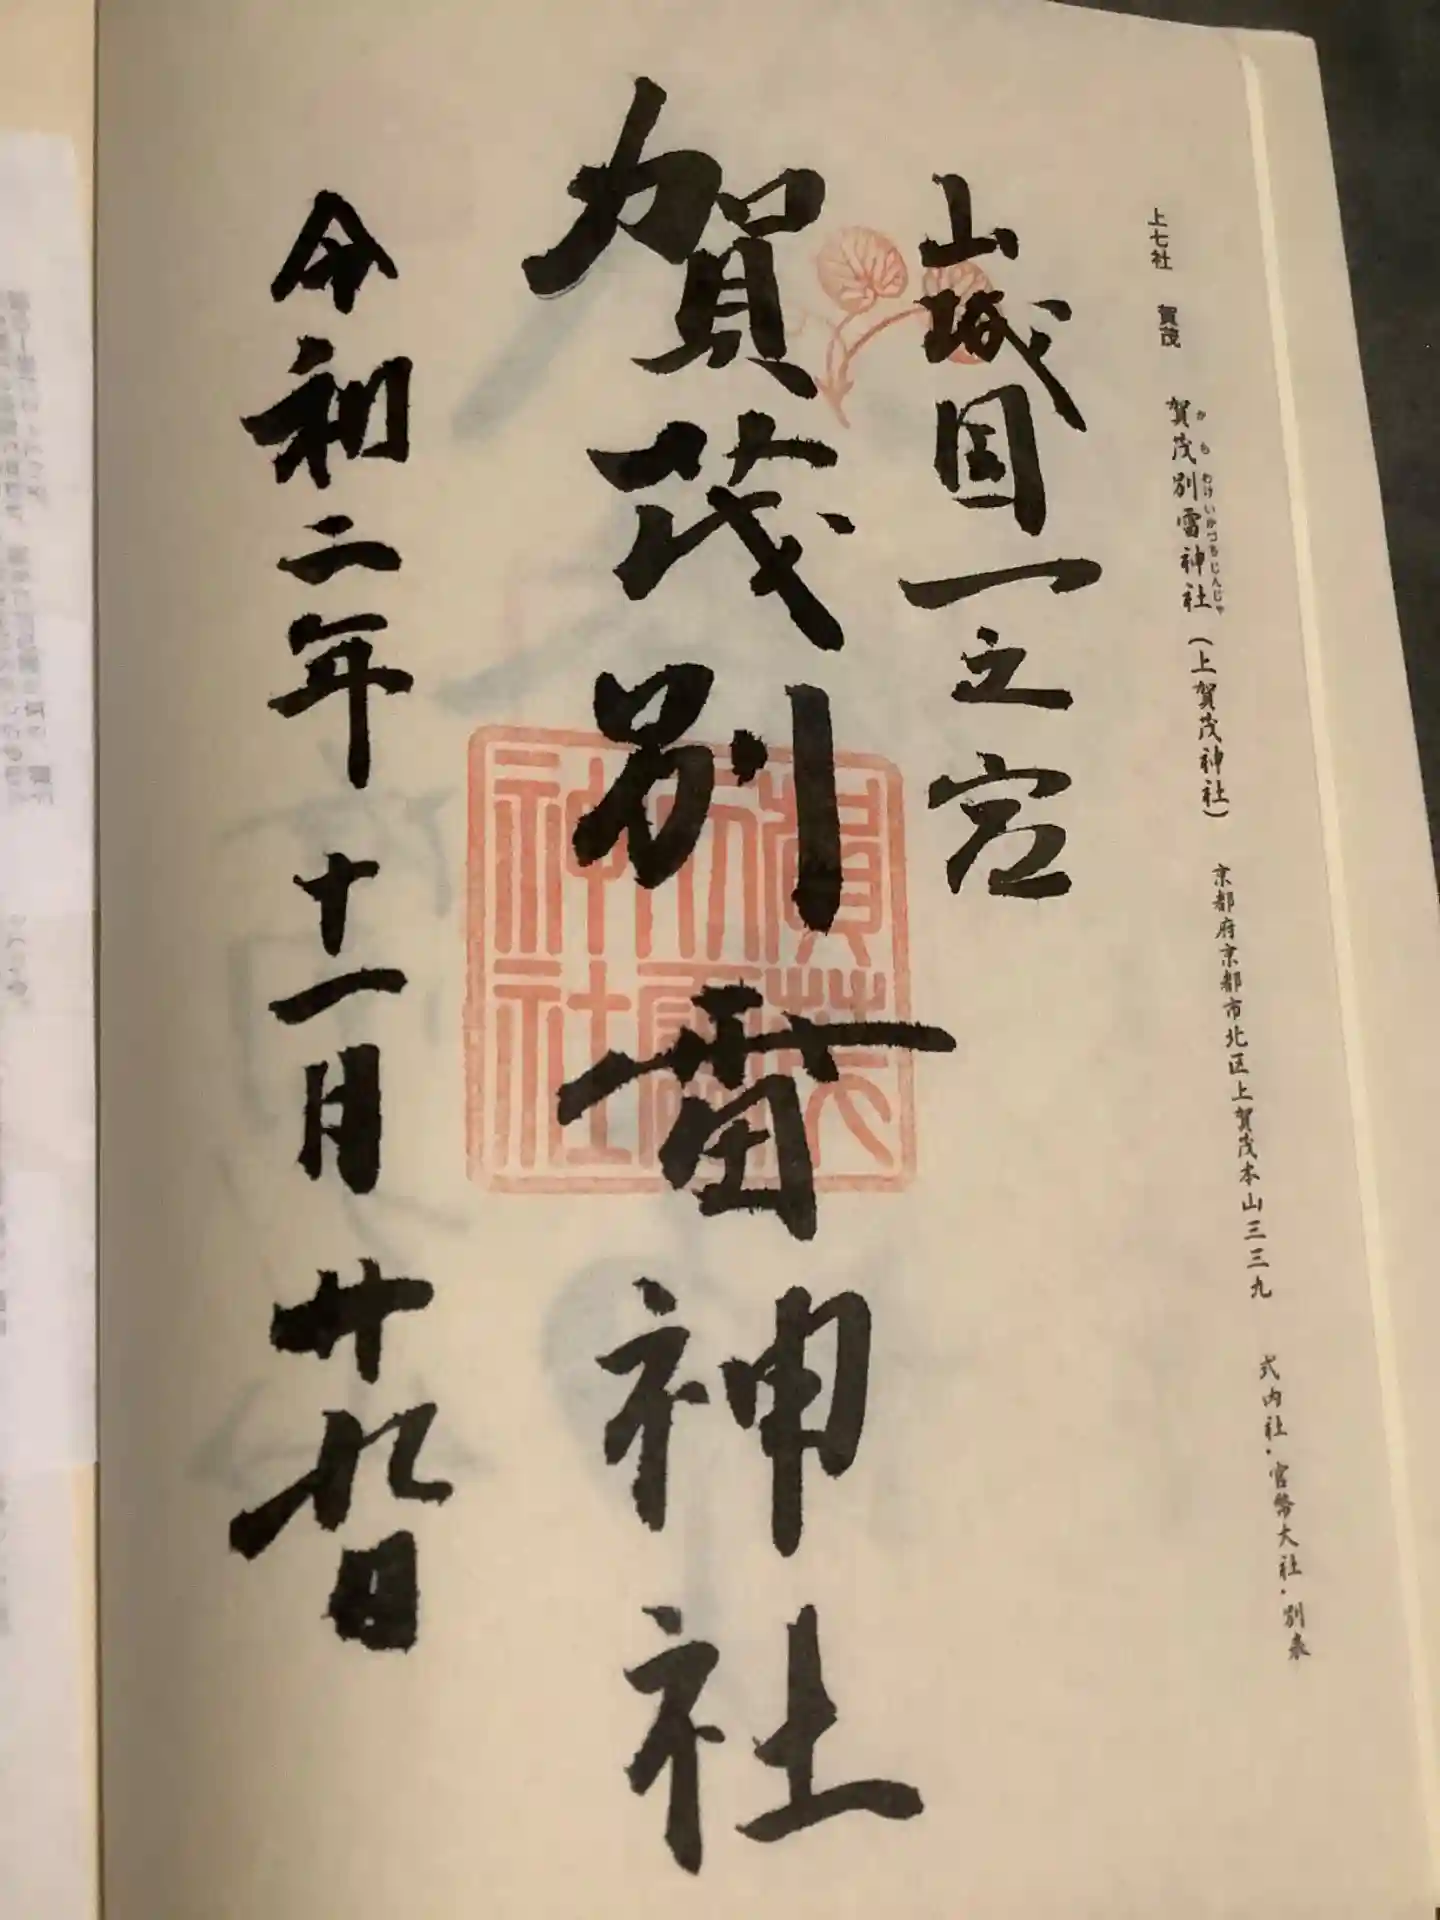 上七社 賀茂 賀茂別雷神社(上賀茂神社) 京都府京都市北区上賀茂本山三三九 式内社・官幣大社・別表
かもわけいかづちじんじゃ
山城国一之宮
賀茂別雷神社
賀茂別雷神社
令和二年十一月廿九日